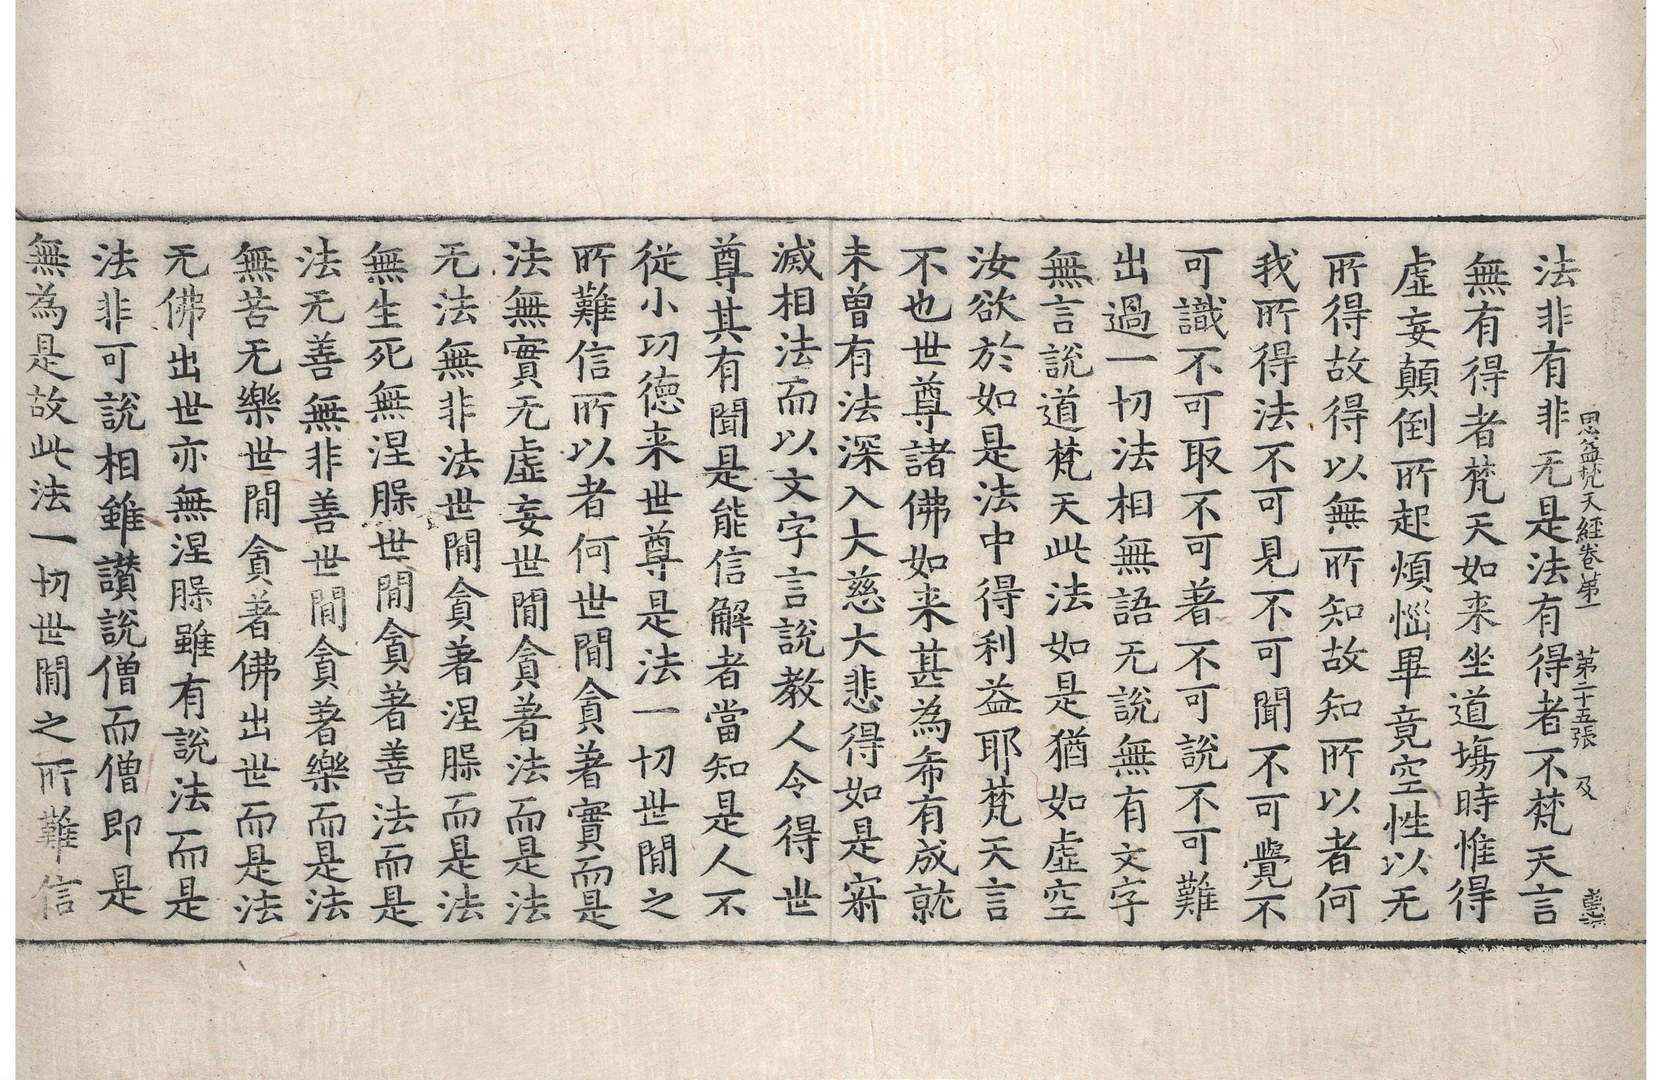 思益梵天經卷第一 第二十五張 及
法非有非无是法有得者不梵天言
無有得者梵天如来坐道場時惟得
虛妄顛倒所起煩惱畢竟空性以无
所得故得以無所知故知所以者何
我所得法不可見不可聞不可覺不
可識不可取不可著不可說不可難
出過一切法相無語无說無有文字
無言說道梵天此法如是猶如虛空
汝欲於如是法中得利益耶梵天言
不也世尊諸佛如来甚為希有成就
未曾有法深入大慈大悲得如是寂
滅相法而以文字言說教人令得世
尊其有聞是能信解者當知是人不
從小功德来世尊是法一切世間之
所難信所以者何世間貪著實而是
法無實无虛妄世間貪著法而是法
无法無非法世間貪著涅槃而是法
無生死無涅槃世間貪著善法而是
法无善無非善世間貪著樂而是法
無苦无樂世間貪著佛出世而是法
无佛出世亦無涅槃雖有說法而是
法非可說相雖讃說僧而僧即是
無為是故此法一切世間之所難信